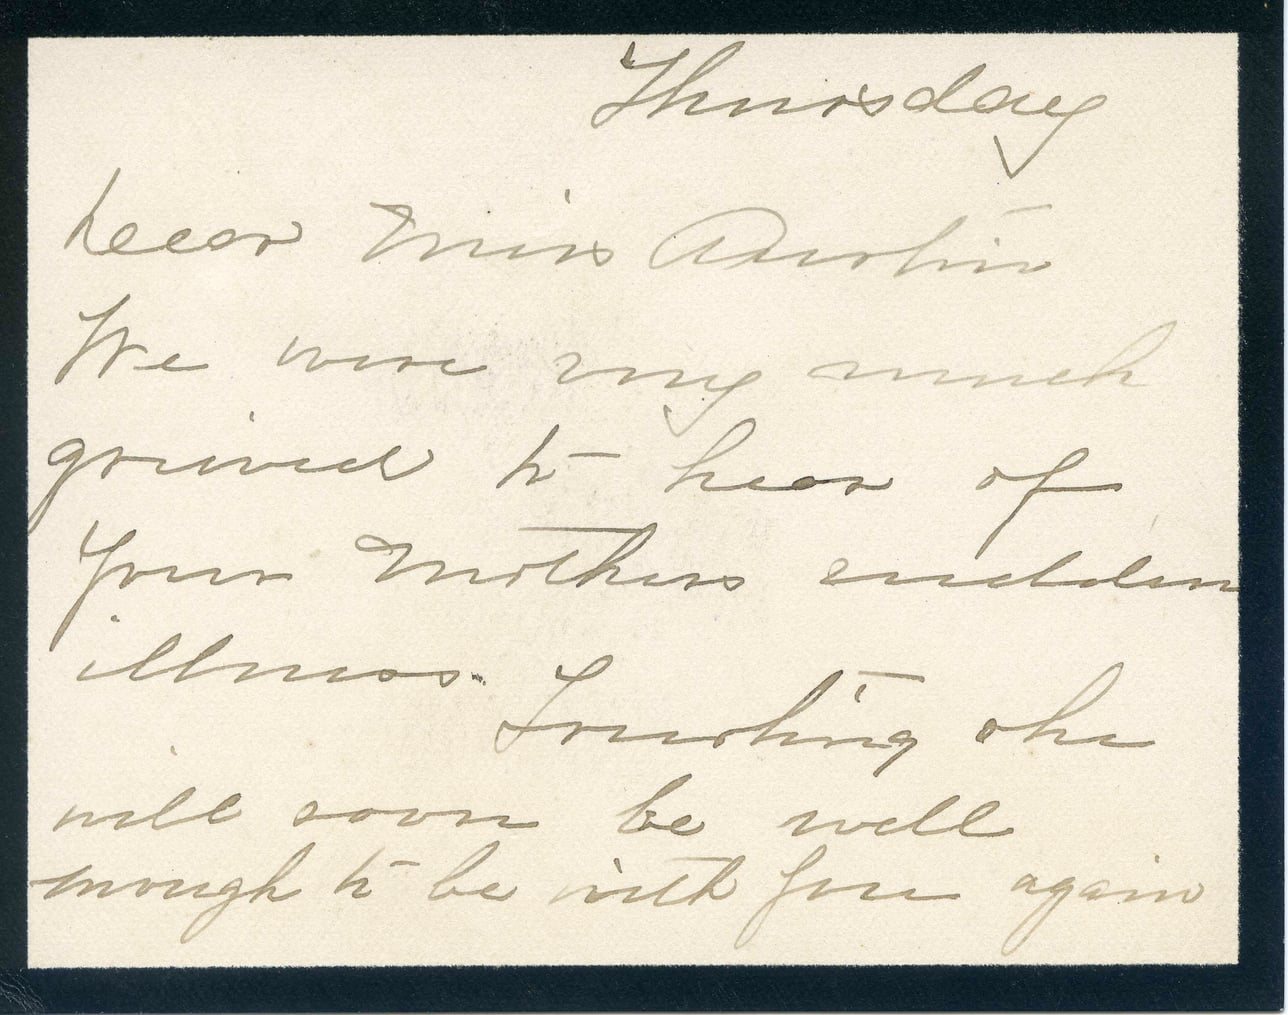 Thursday
Dear Miss Austin
We were very much
grieved to hear of
Your Mothers sudden
illness. Trusting she
will soon be well
enough to be with you again